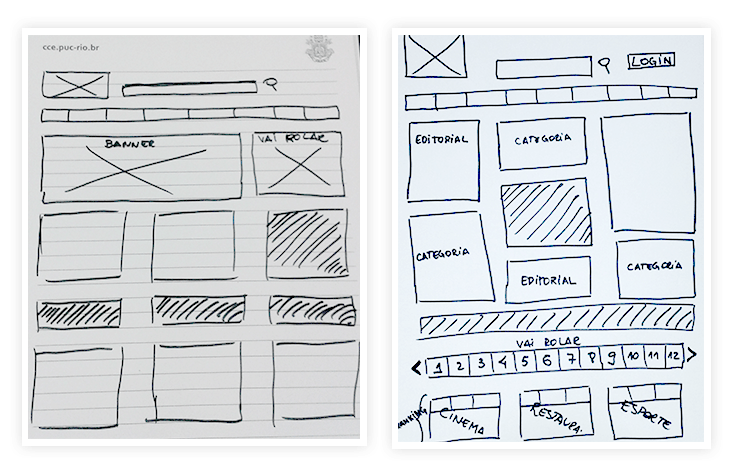 cce.puc-rio.br
BANNER
VAI ROLAR
LOGIN
EDITORIAL
CATEGORIA
CATEGORIA
EDITORIAL
CATEGORIA
VAI ROLAR
< 1 2 3 4 5 6 7 8 9 10 11 12 >
RANKING
CINEMA
RESTAURA.
ESPORTE